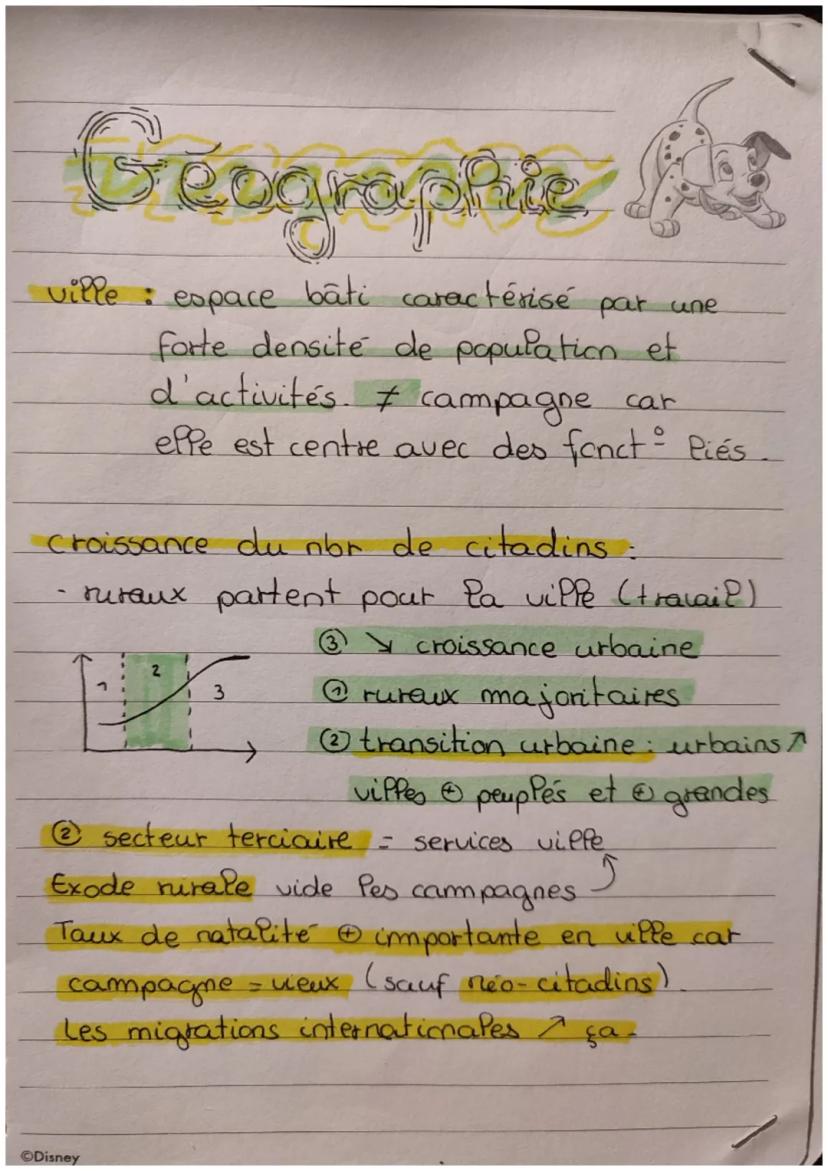 Géographie
ville : espace bâti caractérisé par une
forte densité de population et
d'activités. ≠ campagne car
elle est centre avec des fonct° liés.
croissance du nbr de citadins :
- ruraux partent pour la ville (travail)
③ ↘ croissance urbaine
1 2 3
① ruraux majoritaires
② transition urbaine : urbains ↗
villes ⊕ peuplés et ⊕ grandes
② secteur terciaire = services ville
Exode rurale vide les campagnes
Taux de natalité ⊕ importante en ville car
campagne = vieux (sauf néo-citadins).
Les migrations internationales ↗ ça.
©Disney